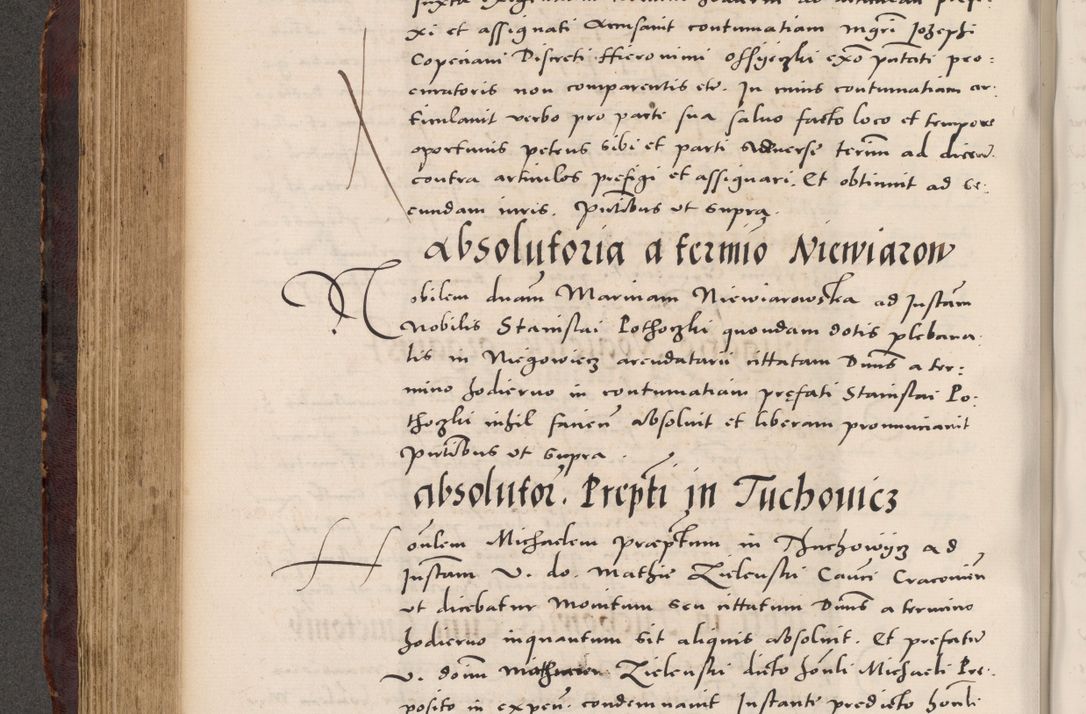 xi et assignati accusavit contumatiam mgri Jozephi
Copeciani Discreti Hieronimi Ossyeczki exō putati pro=
curatoris non comparentis etc. In cuius contumatiam ar-
ticulavit verbo pro parte sua salvo facto loco et tempore
oportunis petens sibi et parti adverse term̄ ad dicen̄.
contra articulos prefigi et assignari. Et obtinuit ad se-
cundam iuris. Pn̄tibus ut supra.
absolutoria a termīo Niewiarow
Nobilem dnām Marinam Niewiarowska ad Instan̄
Nobilis Stanislai Pothoczki quondam dotis plebana-
lis in Niegowicz arendatarii cittatam Dnūs a ter=
mino hodierno in contumatiam prefati Stanislai Po-
thoczki nihil facien̄ absolvit et liberam pronunciavit
Pn̄tibus ut supra.
absolutor̄. Prepti in Tuchouicz
Honlem Michaelem Præptum in Thuchowycz ad
Instan̄ V. do. Mathie Zielenski Canci Cracovien̄
ut dicebatur Monitum seu cittatum Dnūs a termino
hodierno inquantum sit aliquis absolvit. Et prefatū
V. doīm Zielenski dicto honli Michaeli Pre-
posito in expen̄. condemnavit Instante predicto honli